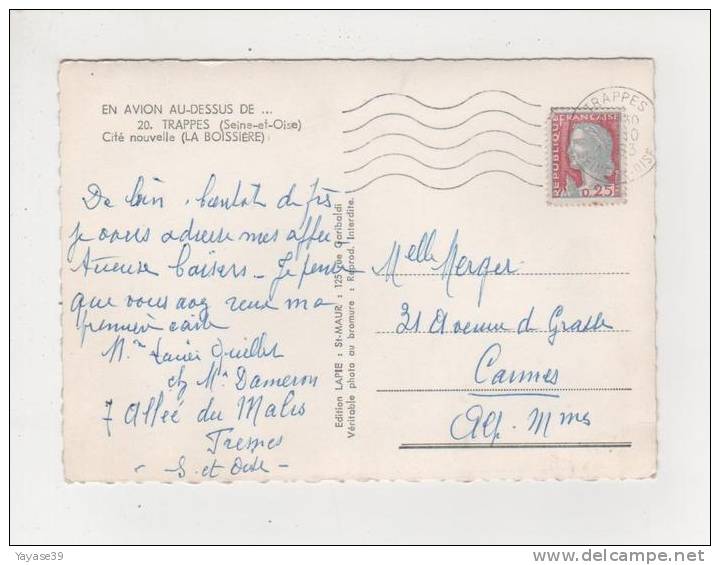 EN AVION AU-DESSUS DE ...
20. TRAPPES (Seine-et-Oise)
Cité nouvelle (LA BOISSIERE)
TRAPPES
REPUBLIQUE FRANÇAISE
0,25
De loin, bientôt de près
je vous adresse mes affec
tueuse baisers - Je pense
que vous avez reçu ma
première carte
Mme Xavier
chez Me Dameron
7 Allée du
S. et Oise
Edition LAPIE : St-MAUR : 125, rue Garibaldi
Véritable photo au bromure : Reprod. Interdite.
Melle Merger
31 Avenue de Grasse
Cannes
Alp. Mmes
Yayase39
delcampe.net